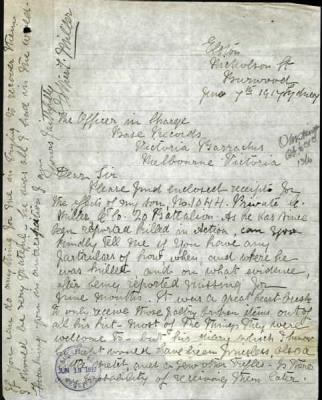 Elston
Nicholson St
Burwood
June 7th 1917 Sydney
The Officer in Charge
Base Records
Victoria Barracks
Melbourne Victoria
Dear Sir
Please find enclosed receipts for
the effects of my son No. Private
Miller 20 Battalion. As he has since
been reported killed in action, can you
kindly tell me if you have any
particulars of how when, and where he
was killed and on what evidence,
after being reported missing for
some months. It was a great heart
to only receive those broken items out of
all his but most of the things they were
welcome to but his diary which I know
kept would have been also a
few other trifles is there
probability of receiving them later.
If you can do anything for me in trying to recover them
I should be very grateful he was all I had in the world.
Thanking you in anticipation I am
Yours faithfully
Miller
JUN 13 1917